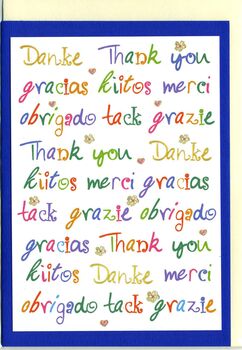 Danke Thank you
gracias kiitos merci
obrigado tack grazie
Thank you Danke
kiitos merci gracias
tack grazie obrigado
gracias Thank you
kiitos Danke merci
obrigado tack grazie